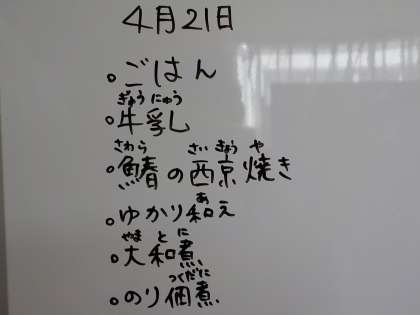 4月21日
。ごはん
ぎゅうにゅう
。牛乳
さわら さいきょうや
。鰆の西京焼き
あ
。ゆかり和え
やまとに
。大和煮
つくだに
。のり佃煮